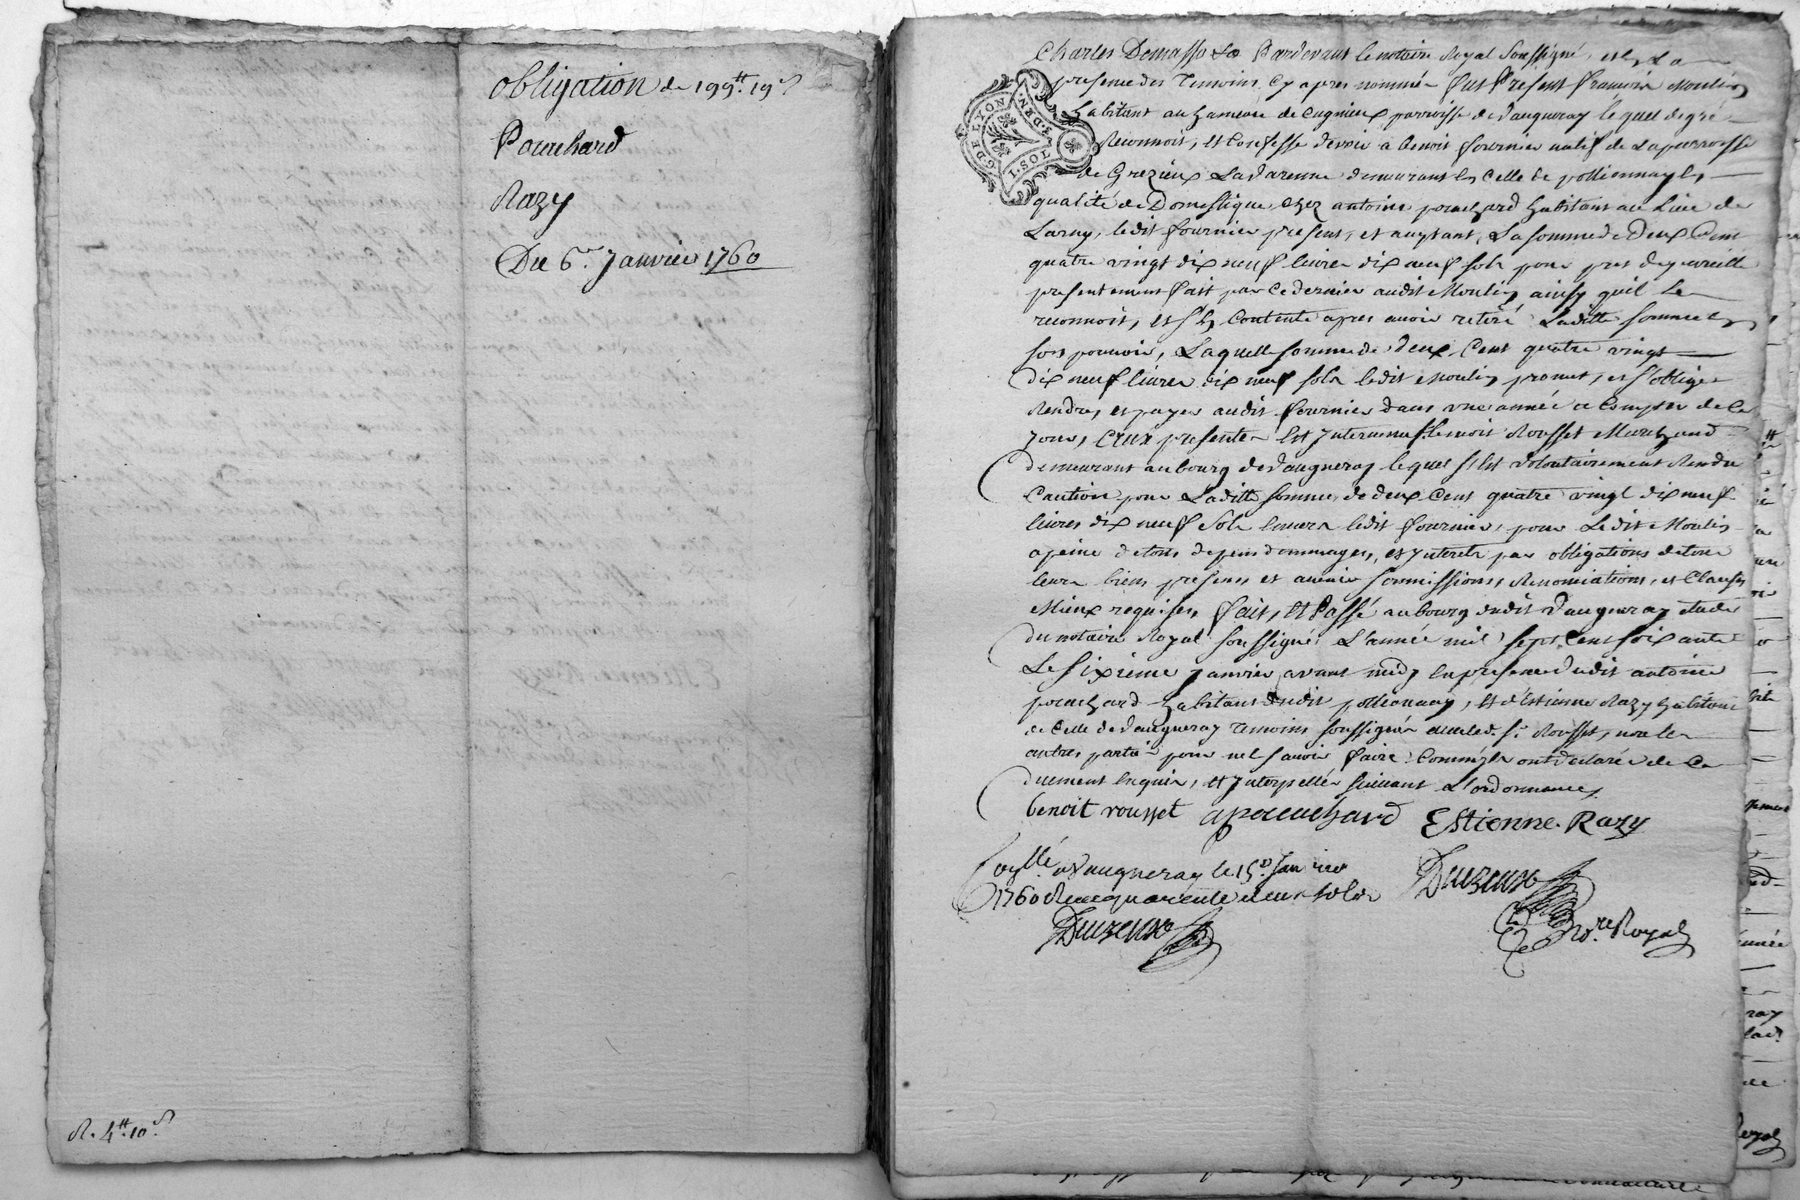 obligation de 199tt. 19s
Pouchard
Razy
Du 6e. Janvier 1760
R. 4tt. 10s
G. DE LYON
G. DEN.
1. SOL
Pardevant le notaire Royal soussigné, et en La
presence des Temoins cy apres nommés fut Present françois Moulin
habitant au hameau de parroisse de Vaugneray lequel de gré
Reconnoit, et Confesse devoir a benoit fournier natif de La parroisse
de Grezieux La Varenne demeurant en Celle de pollionnay En
qualité de Domestique chez antoine pouchard habitant au Lieu de
Larny, ledit fournier present, et acceptant, La somme de Deux Cent
quatre vingt dix neuf livres dix neuf sols pour pret de pareille
presentement fait par ce dernier audit Moulin ainsy quil le
reconnoit, et s'en Contente apres avoir retiré Laditte somme en
son pouvoir, Laquelle somme de deux Cent quatre vingt
dix neuf livres dix neuf sols ledit Moulin promet, et s'oblige
Rendre, et payer audit fournier dans une année a Compter de Ce
jour, Ceux presentes Est Intervenu sr. benoit Rousset Marchand
demeurant au bourg de Vaugneray lequel s'est volontairement Rendu
Caution pour Laditte somme de deux Cent quatre vingt dix neuf
livres dix neuf sols envers ledit fournier, pour Le dit Moulin
a peine de tous depens dommages, et Interets par obligations de tous
leurs biens presens et avenir soumissions, Renonciations, et Clauses
Mieux requises, fait, Et Passé au bourg dudit Vaugneray etude
du notaire Royal soussigné L'année mil sept Cent soixante
Le sixieme Janvier avant midy en presence dudit antoine
pouchard habitant dudit pollionnay, Et d'Estienne Razy habitant
de Celle de Vaugneray Temoins soussignés avec led. sr. Rousset, non les
autres parties pour ne savoir faire Comme ils ont declaré de Ce
duement Enquis, Et Interpellés suivant L'ordonnance,
benoit rousset apouchard Estienne. Razy
Conllé a Vaugneray le 15e Janvier
1760 Receu quarente deux sols
Duizeux
Duizeux
Nore Royal